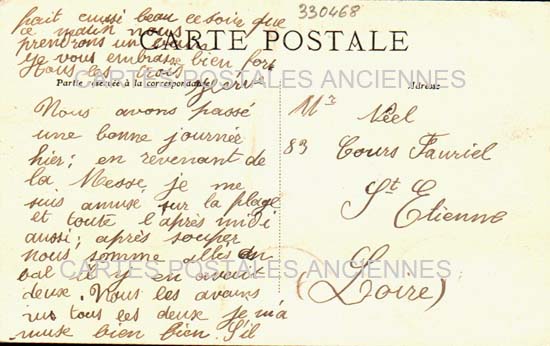 330468
fait aussi beau ce soir que
ce matin nous
prendrons un bain
je vous embrasse bien fort
tous les trois
CARTE POSTALE
CARTES POSTALES ANCIENNES
Partie réservée à la correspondance
Adresse
Nous avons passé
une bonne journée
hier; en revenant de
la Messe, je me
suis amusé sur la plage
et toute l'après midi
aussi; après souper
nous somme allés au
bal il y en avait
deux. Nous les avons
vus tous les deux je m'a
muse bien bien. S'il
Mr Néel
83 Cours Fauriel
St Etienne
(Loire)
CARTES POSTALES ANCIENNES